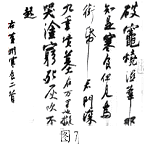 破竈燒濕葦那
知是寒食但見烏
銜帋君門深
九重墳墓在万里也擬
哭塗窮死灰吹不
起
右黃州寒食二首
图7